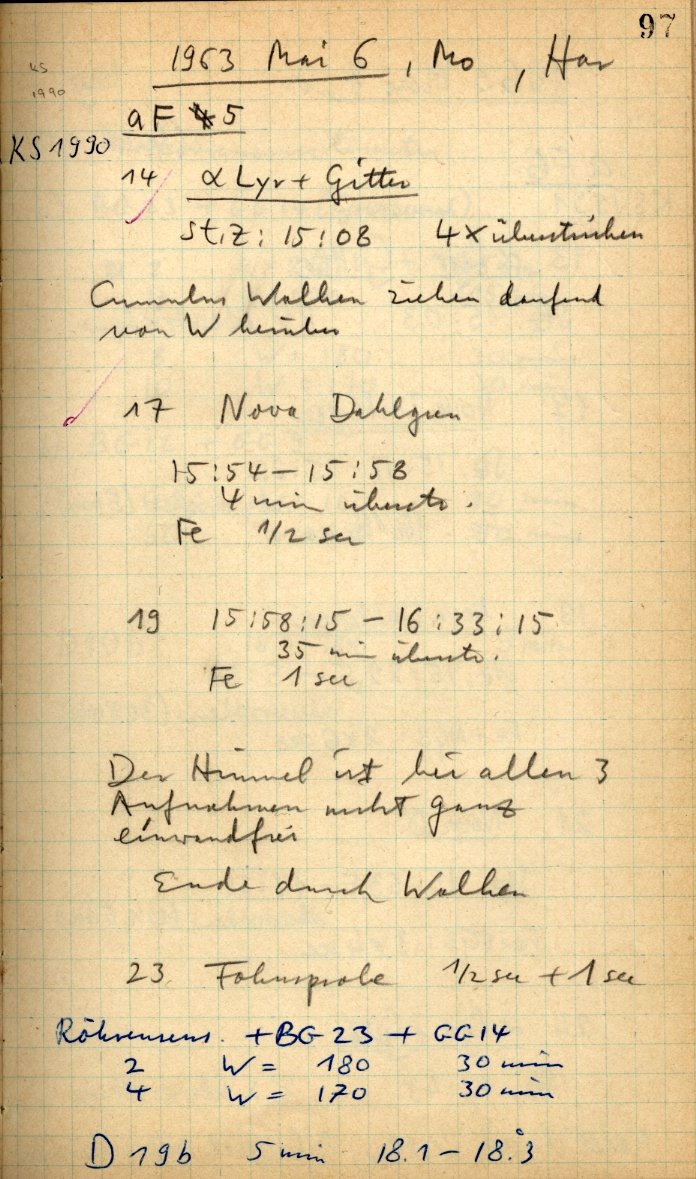 97
1963 Mai 6, Mo, Har
KS
1990
aF 5
KS 1990
14 α Lyr + Gitter
St.Z: 15:08 4 x überstrichen
Cumulus Wolken ziehen laufend
von W herüber
17 Nova Dahlgren
15:54 – 15:58
4 min überstr.
Fe 1/2 sec
19 15:58:15 – 16:33:15
35 min überstr.
Fe 1 sec
Der Himmel ist bei allen 3
Aufnahmen nicht ganz
einwandfrei
Ende durch Wolken
23 1/2 sec + 1 sec
Röhrensens. + BG 23 + GG 14
2 W = 180 30 min
4 W = 170 30 min
D 19b 5 min 18.1 – 18.°3